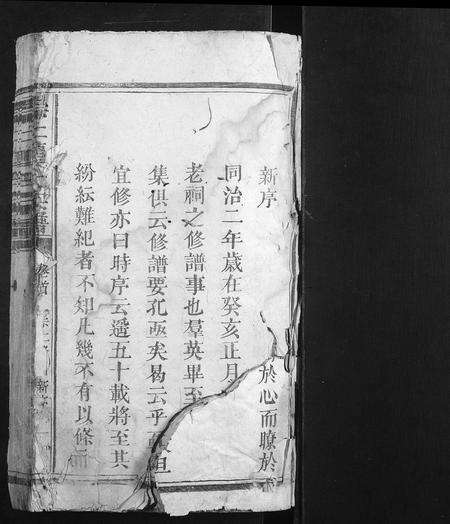 新序
於心而瞭於
同治二年歲在癸亥正月
老祠之修譜事也羣英畢至
集俱云修譜要孔亟矣曷云乎
宜修亦曰時序云遥五十載將至其
紛紜難紀者不知凡幾不有以條而
卷首
新序